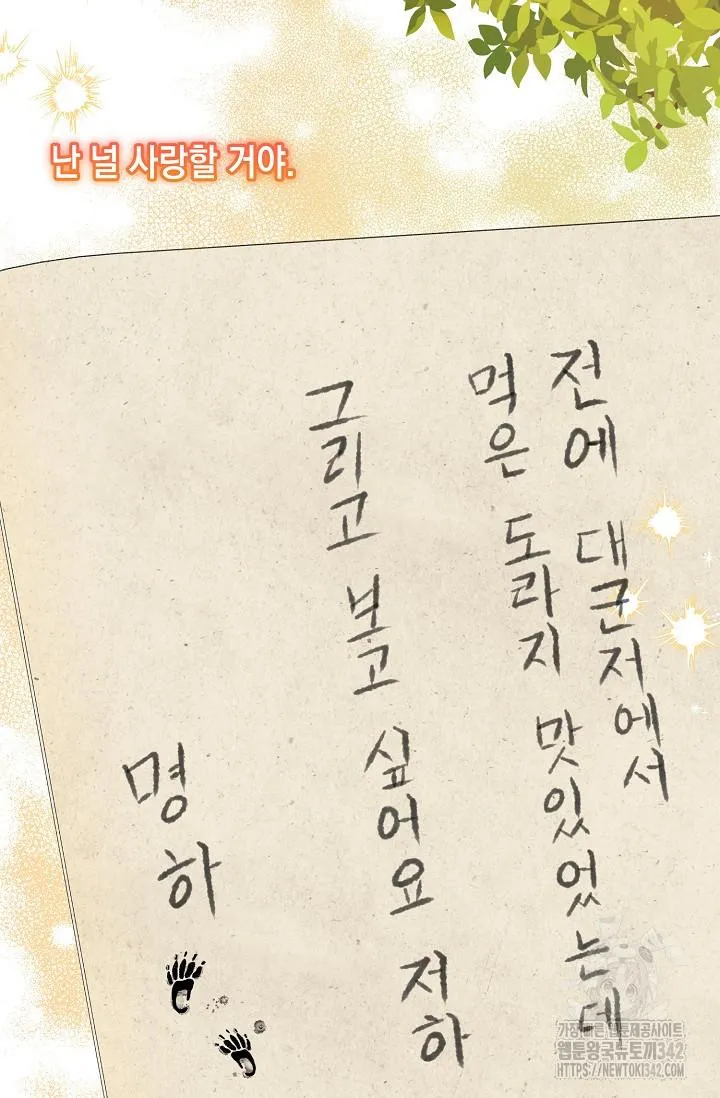 난 널 사랑할 거야.
전에 대군저에서
먹은 도라지 맛있었는데
그리고 보고 싶어요 저하
명하
가장빠른 웹툰제공사이트
웹툰왕국뉴토끼342
HTTPS://NEWTOKI342